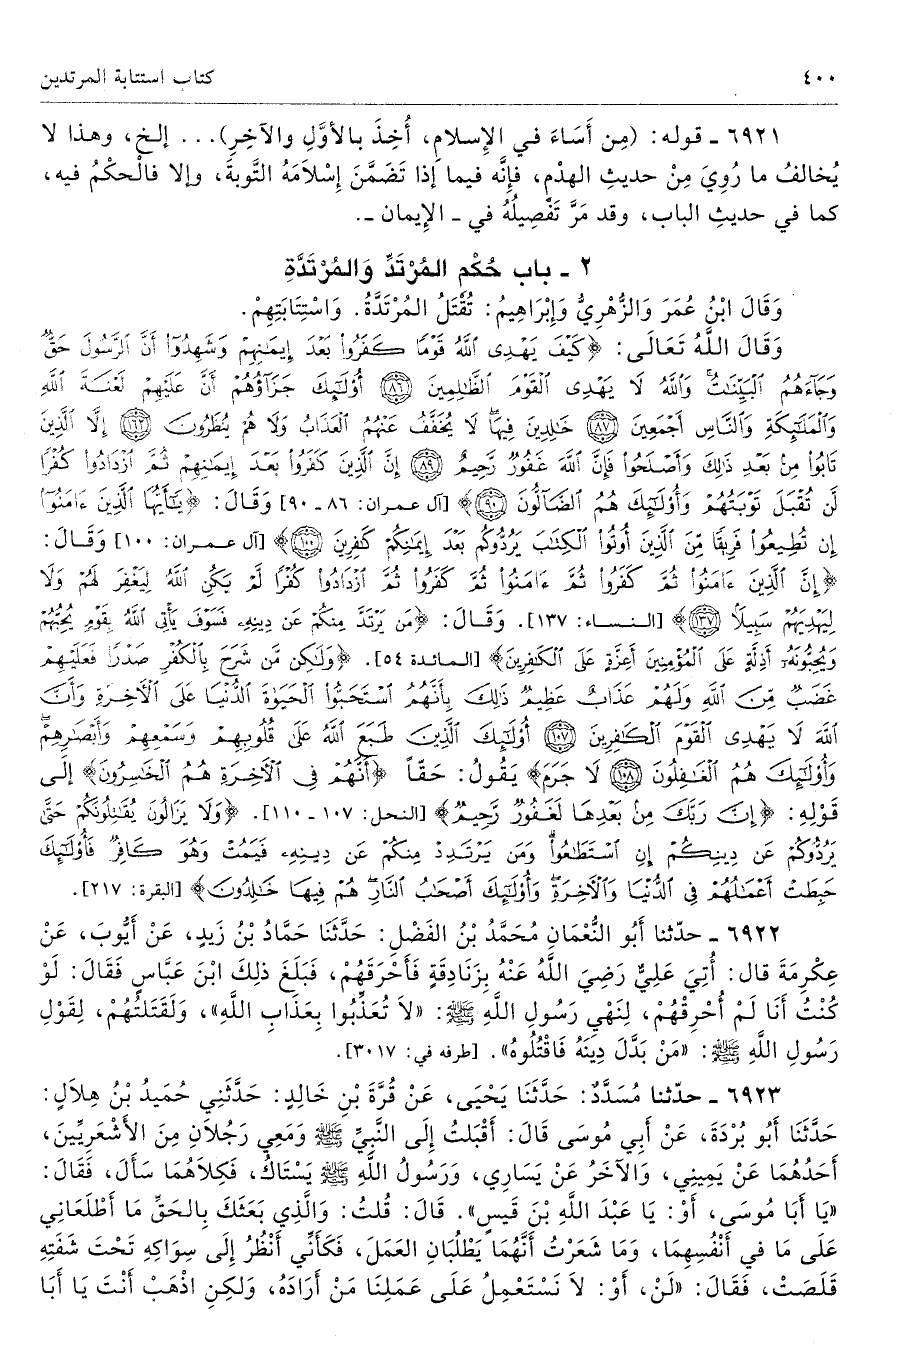 ٤٠٠ كتاب استتابة المرتدين
٦٩٢١ ـ قوله: (مِن أَسَاءَ في الإِسلامِ، أُخِذَ بالأوَّلِ والآخِرِ)... إلخ، وهذا لا
يُخالفُ ما رُوِيَ مِنْ حديثِ الهدْمِ، فإنَّه فيما إذا تَضَمَّنَ إِسْلامُهُ التَّوبةَ، وإلا فالْحكمُ فيه،
كما في حديثِ الباب، وقد مَرَّ تَفْصِيلُهُ في ـ الإِيمان ـ.
٢ ـ باب حُكْمِ المُرْتَدِّ وَالمُرْتَدَّةِ
وَقَالَ ابْنُ عُمَرَ وَالزُّهْرِيُّ وَإِبْرَاهِيمُ: تُقْتَلُ المُرْتَدَّةُ. وَاسْتِتَابَتِهِمْ.
وَقَالَ اللَّهُ تَعَالَى: ﴿كَيْفَ يَهْدِى ٱللَّهُ قَوْمًا كَفَرُوا۟ بَعْدَ إِيمَٰنِهِمْ وَشَهِدُوٓا۟ أَنَّ ٱلرَّسُولَ حَقٌّ
وَجَآءَهُمُ ٱلْبَيِّنَٰتُ وَٱللَّهُ لَا يَهْدِى ٱلْقَوْمَ ٱلظَّٰلِمِينَ ﴿٨٦﴾ أُو۟لَٰٓئِكَ جَزَآؤُهُمْ أَنَّ عَلَيْهِمْ لَعْنَةَ ٱللَّهِ
وَٱلْمَلَٰٓئِكَةِ وَٱلنَّاسِ أَجْمَعِينَ ﴿٨٧﴾ خَٰلِدِينَ فِيهَا لَا يُخَفَّفُ عَنْهُمُ ٱلْعَذَابُ وَلَا هُمْ يُنظَرُونَ ﴿١٦٢﴾ إِلَّا ٱلَّذِينَ
تَابُوا۟ مِنۢ بَعْدِ ذَٰلِكَ وَأَصْلَحُوا۟ فَإِنَّ ٱللَّهَ غَفُورٌ رَّحِيمٌ ﴿٨٩﴾ إِنَّ ٱلَّذِينَ كَفَرُوا۟ بَعْدَ إِيمَٰنِهِمْ ثُمَّ ٱزْدَادُوا۟ كُفْرًا
لَّن تُقْبَلَ تَوْبَتُهُمْ وَأُو۟لَٰٓئِكَ هُمُ ٱلضَّآلُّونَ ﴿٩٠﴾﴾ [آل عمران: ٨٦ ـ ٩٠] وَقَالَ: ﴿يَٰٓأَيُّهَا ٱلَّذِينَ ءَامَنُوٓا۟
إِن تُطِيعُوا۟ فَرِيقًا مِّنَ ٱلَّذِينَ أُوتُوا۟ ٱلْكِتَٰبَ يَرُدُّوكُم بَعْدَ إِيمَٰنِكُمْ كَٰفِرِينَ ﴿١٠٠﴾﴾ [آل عمران: ١٠٠] وَقَالَ:
﴿إِنَّ ٱلَّذِينَ ءَامَنُوا۟ ثُمَّ كَفَرُوا۟ ثُمَّ ءَامَنُوا۟ ثُمَّ كَفَرُوا۟ ثُمَّ ٱزْدَادُوا۟ كُفْرًا لَّمْ يَكُنِ ٱللَّهُ لِيَغْفِرَ لَهُمْ وَلَا
لِيَهْدِيَهُمْ سَبِيلًا ﴿١٣٧﴾﴾ [النساء: ١٣٧]. وَقَالَ: ﴿مَن يَرْتَدَّ مِنكُمْ عَن دِينِهِۦ فَسَوْفَ يَأْتِى ٱللَّهُ بِقَوْمٍ يُحِبُّهُمْ
وَيُحِبُّونَهُۥٓ أَذِلَّةٍ عَلَى ٱلْمُؤْمِنِينَ أَعِزَّةٍ عَلَى ٱلْكَٰفِرِينَ﴾ [المائدة ٥٤]. ﴿وَلَٰكِن مَّن شَرَحَ بِٱلْكُفْرِ صَدْرًا فَعَلَيْهِمْ
غَضَبٌ مِّنَ ٱللَّهِ وَلَهُمْ عَذَابٌ عَظِيمٌ ذَٰلِكَ بِأَنَّهُمُ ٱسْتَحَبُّوا۟ ٱلْحَيَوٰةَ ٱلدُّنْيَا عَلَى ٱلْءَاخِرَةِ وَأَنَّ
ٱللَّهَ لَا يَهْدِى ٱلْقَوْمَ ٱلْكَٰفِرِينَ ﴿١٠٧﴾ أُو۟لَٰٓئِكَ ٱلَّذِينَ طَبَعَ ٱللَّهُ عَلَىٰ قُلُوبِهِمْ وَسَمْعِهِمْ وَأَبْصَٰرِهِمْ
وَأُو۟لَٰٓئِكَ هُمُ ٱلْغَٰفِلُونَ ﴿١٠٨﴾ لَا جَرَمَ﴾ يَقُولُ: حَقّاً ﴿أَنَّهُمْ فِى ٱلْءَاخِرَةِ هُمُ ٱلْخَٰسِرُونَ﴾ إِلَى
قَوْلِهِ: ﴿إِنَّ رَبَّكَ مِنۢ بَعْدِهَا لَغَفُورٌ رَّحِيمٌ﴾ [النحل: ١٠٧ ـ ١١٠]. ﴿وَلَا يَزَالُونَ يُقَٰتِلُونَكُمْ حَتَّىٰ
يَرُدُّوكُمْ عَن دِينِكُمْ إِنِ ٱسْتَطَٰعُوا۟ وَمَن يَرْتَدِدْ مِنكُمْ عَن دِينِهِۦ فَيَمُتْ وَهُوَ كَافِرٌ فَأُو۟لَٰٓئِكَ
حَبِطَتْ أَعْمَٰلُهُمْ فِى ٱلدُّنْيَا وَٱلْءَاخِرَةِ وَأُو۟لَٰٓئِكَ أَصْحَٰبُ ٱلنَّارِ هُمْ فِيهَا خَٰلِدُونَ﴾ [البقرة: ٢١٧].
٦٩٢٢ ـ حدّثنا أَبُو النُّعْمَانِ مُحَمَّدُ بْنُ الفَضْلِ: حَدَّثَنَا حَمَّادُ بْنُ زَيدٍ، عَنْ أَيُّوبَ، عَنْ
عِكْرِمَةَ قال: أُتِيَ عَلِيٌّ رَضِيَ اللَّهُ عَنْهُ بِزَنَادِقَةٍ فَأَحْرَقَهُمْ، فَبَلَغَ ذلِكَ ابْنَ عَبَّاسٍ فَقَالَ: لَوْ
كُنْتُ أَنَا لَمْ أُحْرِقْهُمْ، لِنَهْيِ رَسُولِ اللَّهِ ﷺ: «لاَ تُعَذِّبُوا بِعَذَابِ اللَّهِ»، وَلَقَتَلتُهُمْ، لِقَوْلِ
رَسُولِ اللَّهِ ﷺ: «مَنْ بَدَّلَ دِينَهُ فَاقْتُلُوهُ». [طرفه في: ٣٠١٧].
٦٩٢٣ ـ حدّثنا مُسَدَّدٌ: حَدَّثَنَا يَحْيَى، عَنْ قُرَّةَ بْنِ خَالِدٍ: حَدَّثَنِي حُمَيدُ بْنُ هِلاَلٍ:
حَدَّثَنَا أَبُو بُرْدَةَ، عَنْ أَبِي مُوسَى قَالَ: أَقْبَلتُ إِلَى النَّبِيِّ ﷺ وَمَعِي رَجُلاَنِ مِنَ الأَشْعَرِيِّينَ،
أَحَدُهُمَا عَنْ يَمِينِي، وَالآخَرُ عَنْ يَسَارِي، وَرَسُولُ اللَّهِ ﷺ يَسْتَاكُ، فَكِلاَهُمَا سَأَلَ، فَقَالَ:
«يَا أَبَا مُوسَى، أَوْ: يَا عَبْدَ اللَّهِ بْنَ قَيسٍ». قَالَ: قُلتُ: وَالَّذِي بَعَثَكَ بِالحَقِّ مَا أَطْلَعَانِي
عَلَى مَا في أَنْفُسِهِمَا، وَمَا شَعَرْتُ أَنَّهُمَا يَطْلُبَانِ العَمَلَ، فَكَأَنِّي أَنْظُرُ إِلَى سِوَاكِهِ تَحْتَ شَفَتِهِ
قَلَصَتْ، فَقَالَ: «لَنْ، أَوْ: لاَ نَسْتَعْمِلُ عَلَى عَمَلِنَا مَنْ أَرَادَهُ، وَلَكِنِ اذْهَبْ أَنْتَ يَا أَبَا